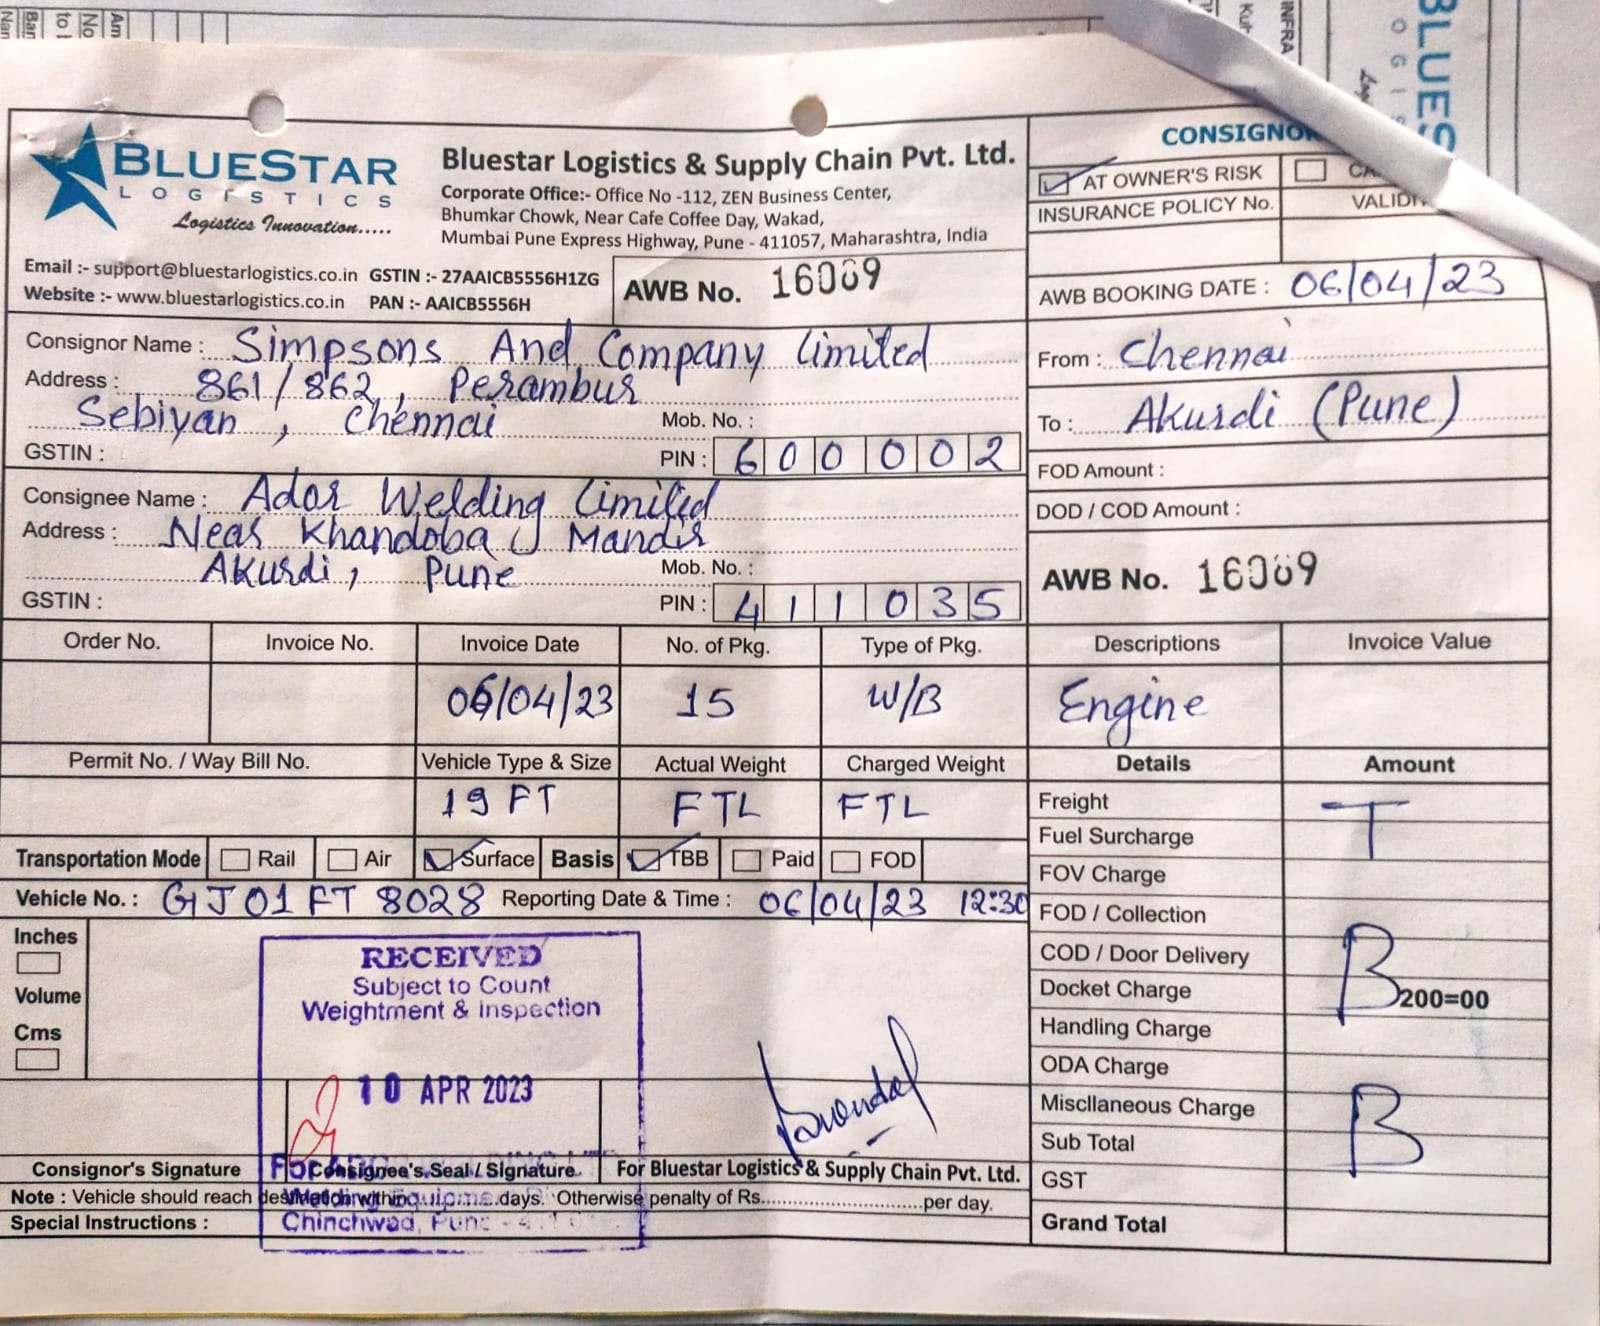 BLUESTAR
LOGISTICS
Logistics Innovation.....
Bluestar Logistics & Supply Chain Pvt. Ltd.
Corporate Office:- Office No -112, ZEN Business Center,
Bhumkar Chowk, Near Cafe Coffee Day, Wakad,
Mumbai Pune Express Highway, Pune - 411057, Maharashtra, India
Email :- support@bluestarlogistics.co.in GSTIN :- 27AAICB5556H1ZG
Website :- www.bluestarlogistics.co.in PAN :- AAICB5556H
AWB No. 16089
AT OWNER'S RISK
INSURANCE POLICY No.
AWB BOOKING DATE : 06/04/23
Consignor Name : Simpsons And Company Limited
Address : 861/862, Perambur
Sebiyan, Chennai Mob. No. :
GSTIN : PIN : 600002
From : Chennai
To : Akurdi (Pune)
FOD Amount :
DOD / COD Amount :
Consignee Name : Ador Welding Limited
Address : Near Khandoba Mandir
Akurdi, Pune Mob. No. :
GSTIN : PIN : 411035
AWB No. 16089
Order No. Invoice No. Invoice Date No. of Pkg. Type of Pkg. Descriptions Invoice Value
06/04/23 15 W/B Engine
Permit No. / Way Bill No. Vehicle Type & Size Actual Weight Charged Weight Details Amount
19 FT FTL FTL
Transportation Mode Rail Air Surface Basis TBB Paid FOD
Vehicle No. : GJ 01 FT 8028 Reporting Date & Time : 06/04/23 12:30
Inches
Volume
Cms
RECEIVED
Subject to Count
Weightment & Inspection
10 APR 2023
Freight T
Fuel Surcharge
FOV Charge
FOD / Collection
COD / Door Delivery B
Docket Charge 200=00
Handling Charge
ODA Charge
Miscllaneous Charge B
Sub Total
GST
Grand Total
Consignor's Signature Consignee's Seal / Signature For Bluestar Logistics & Supply Chain Pvt. Ltd.
Note : Vehicle should reach days. Otherwise penalty of Rs. per day.
Special Instructions :
Chinchwad, Pune